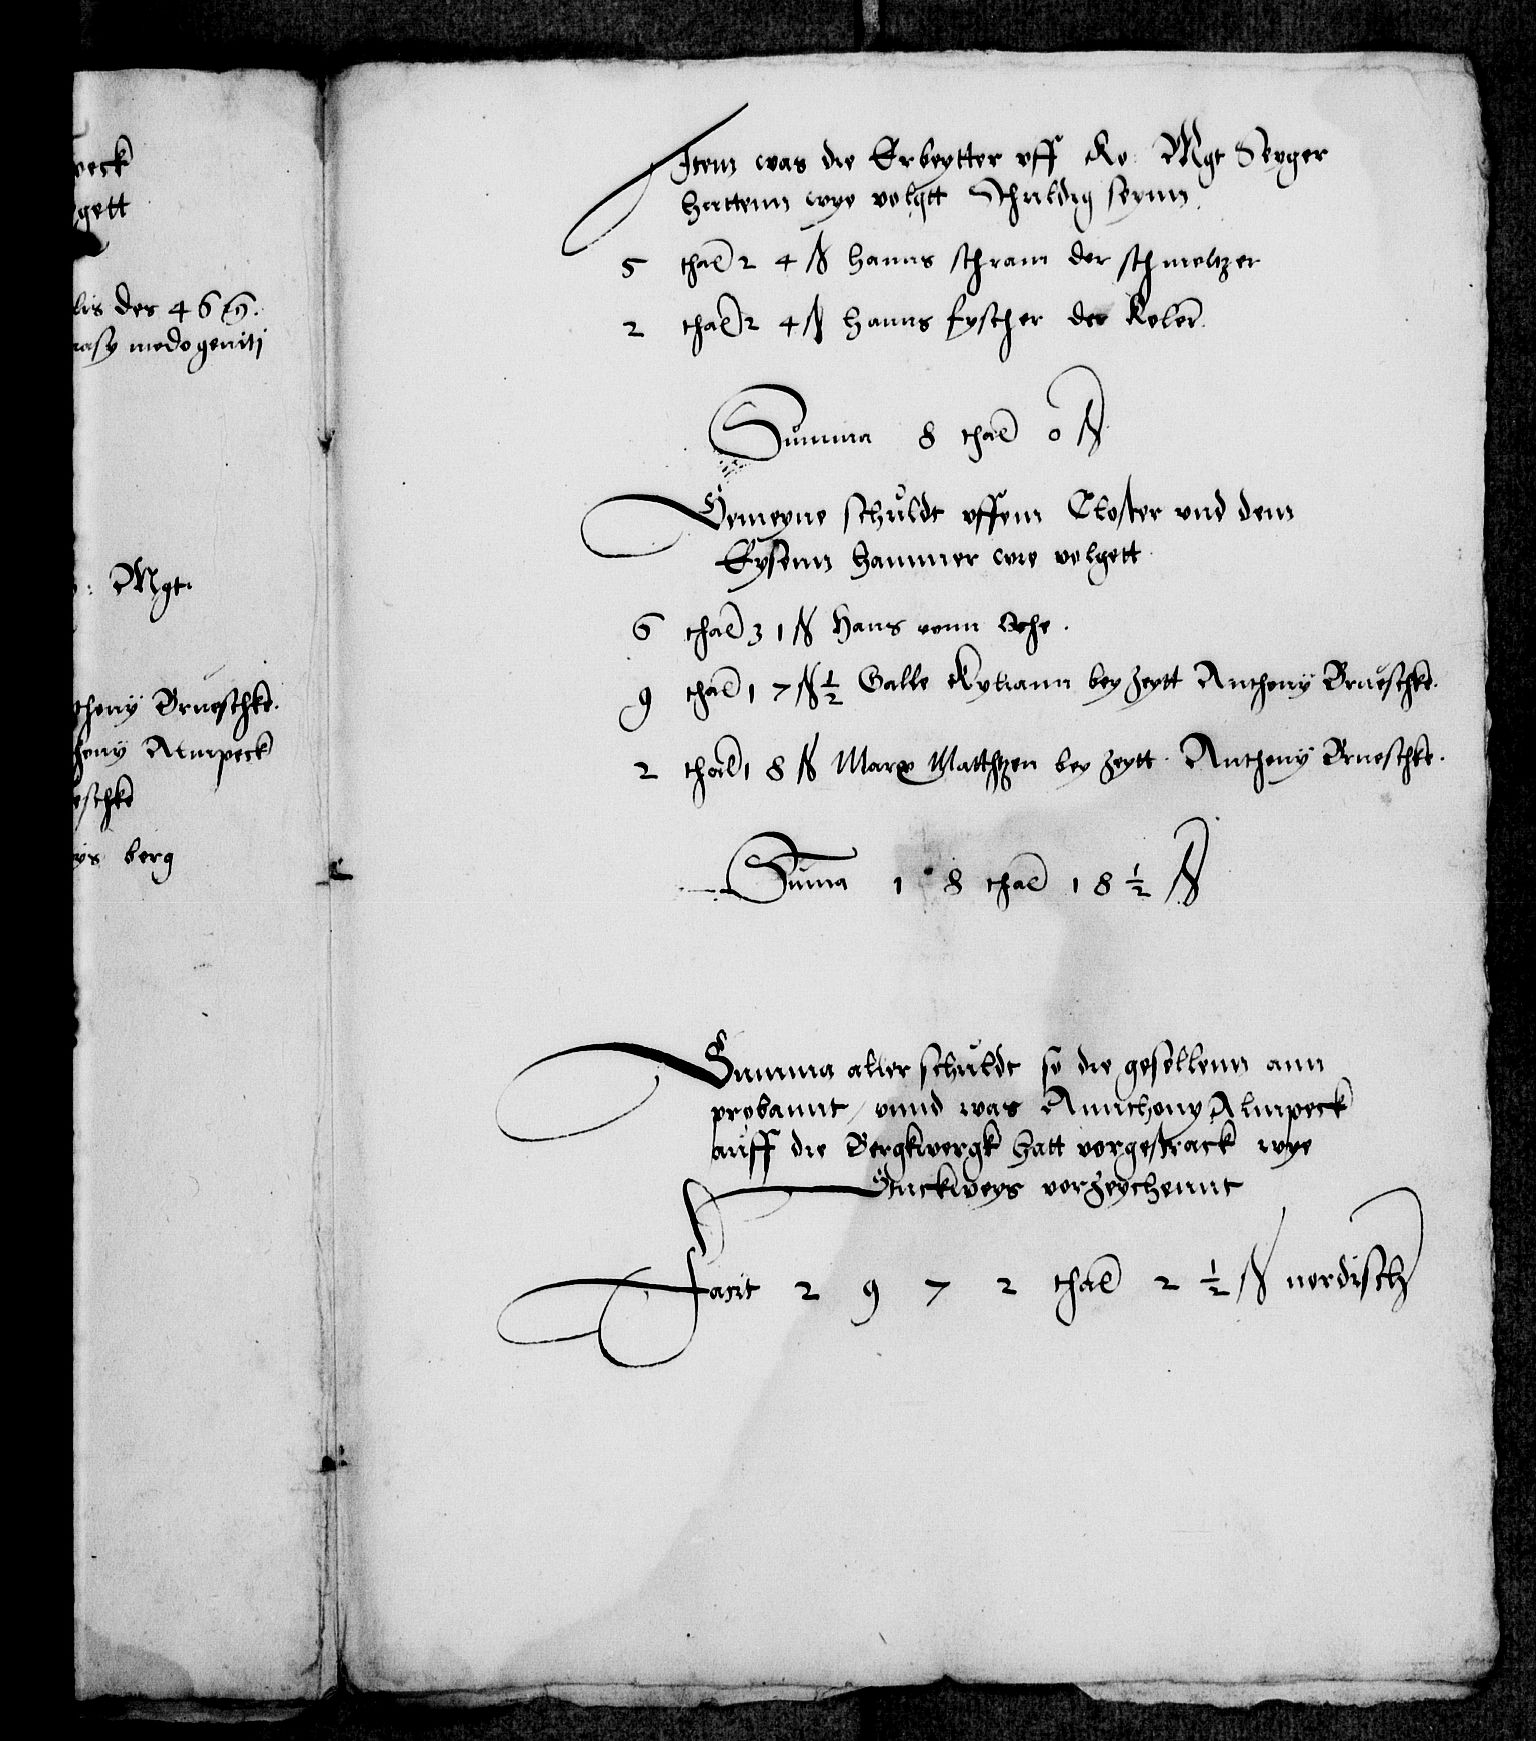 peck
lgett
lis des 46
nasy medogeniti
: Mgt.
thony Brueschke.
thony Alnpeck
eschke
ys berg
Item was die Erbeytter vff Ko: Mgt Seyger
hüttenn wye volgtt Schuldig seynn.
5 thal 24 ß hanns schram der schmeltzer
2 thal 24 ß hanns fyscher der Koler
Summa 8 thal 0 ß
Gemeyne schuldt vffem Closter vnd dem
Eysenn hammer wie volgett
6 thal 31 ß Hans vonn Ache.
9 thal 17 ß ½ Galle Kyliann bey zeytt Anthony Brueschke.
2 thal 18 ß Marx Matthzen bey zeytt Anthony Brueschke.
Suma 18 thal 18 ½ ß
Summa aller schuldt so die gesellenn ann
probannt / vnnd was Annthony Alnpeck
auff die Bergkwergk hatt vorgestrack wye
Stuckweys vorzeychennt
facit 2972 thal 2 ½ ß nordisch